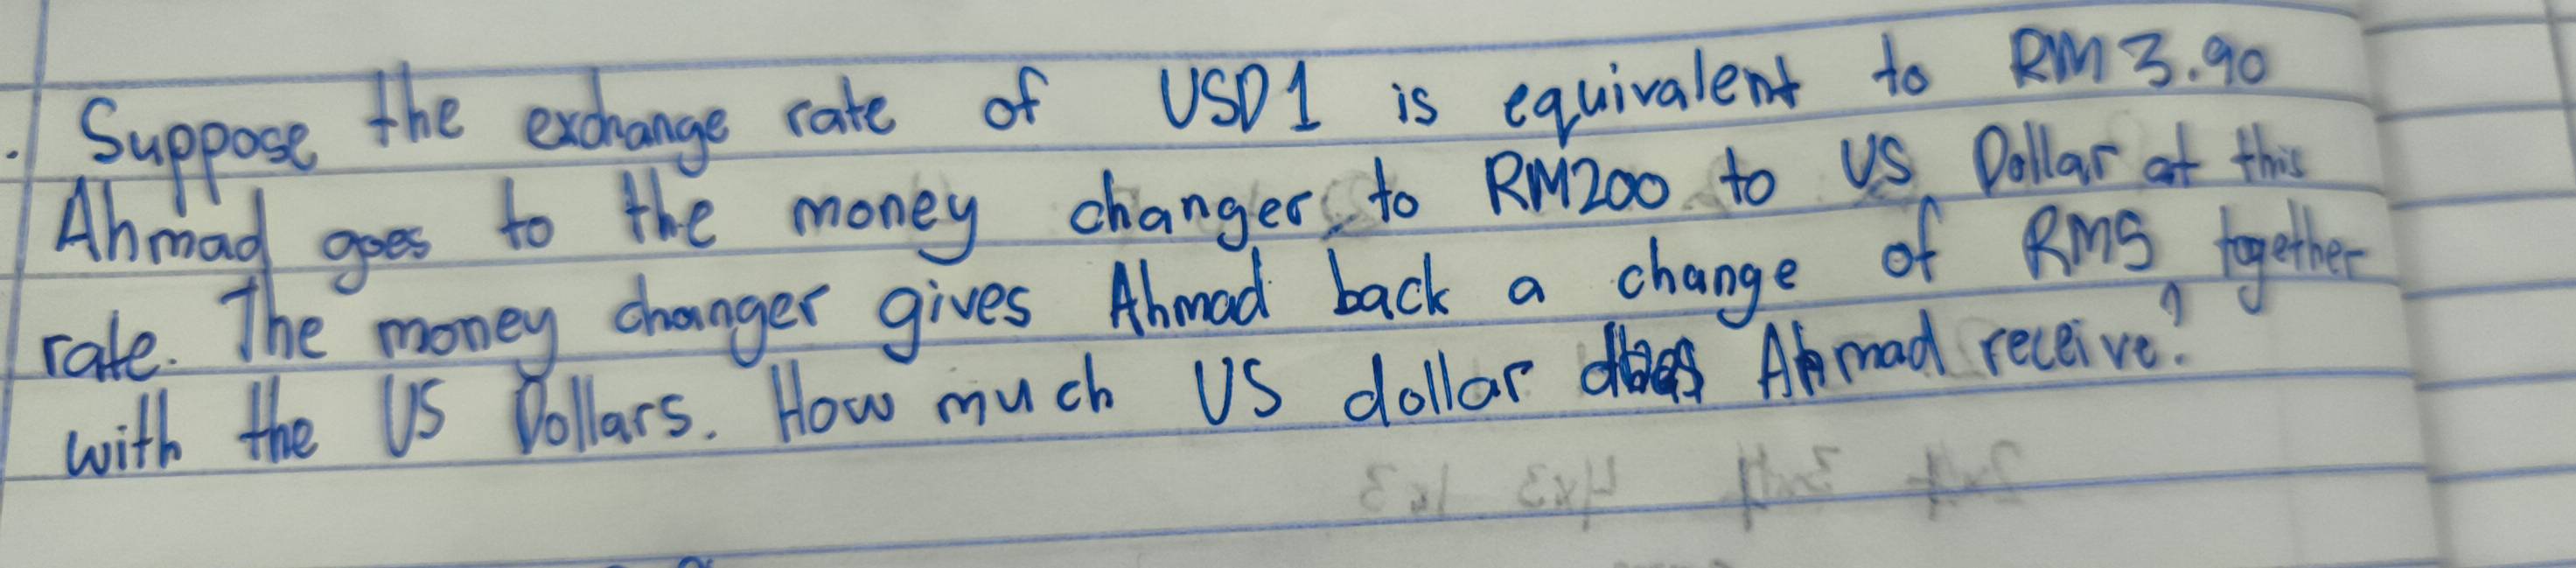 . Suppose the exchange rate of USD1 is equivalent to RM3.90
Ahmad goes to the money changer to RM200 to US Dollar at this
rate. The money changer gives Ahmad back a change of RM5 together
with the US Dollars. How much US dollar does Ahmad receive?